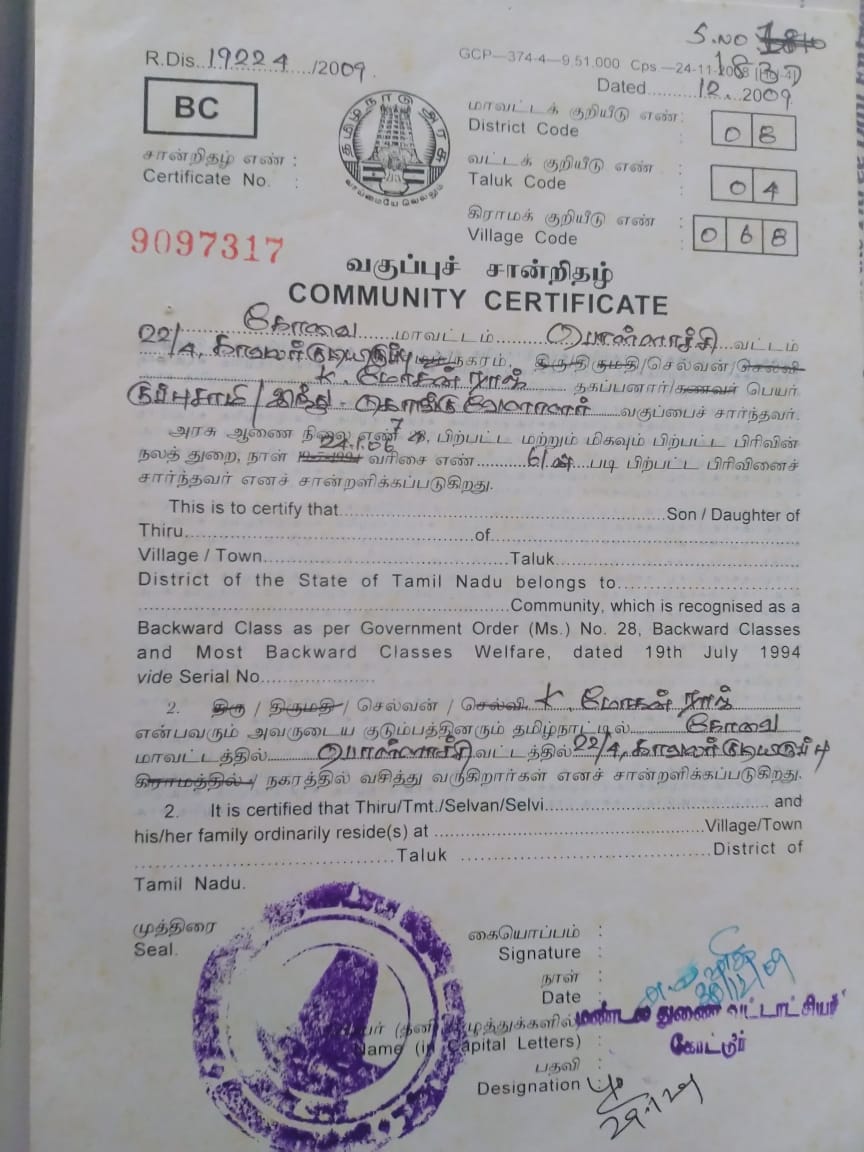 S.NO
R.Dis. 19224 /2009.
GCP—374-4—9,51,000 Cps—24-11-2008
Dated 12 2009
BC
மாவட்டக் குறியீடு எண் :
District Code 08
சான்றிதழ் எண் :
Certificate No. :
வட்டக் குறியீடு எண் :
Taluk Code 04
கிராமக் குறியீடு எண் :
Village Code 068
தமிழ்நாடு அரசு
வாய்மையே வெல்லும்
9097317
வகுப்புச் சான்றிதழ்
COMMUNITY CERTIFICATE
கோவை மாவட்டம் பொள்ளாச்சி வட்டம்
22/4, காவலர் குடியிருப்பு /நகரம், திரு/திருமதி/செல்வன்/செல்வி
K. மோகன் ராஜ் தகப்பனார்/கணவர் பெயர்
குப்புசாமி / இந்து - கொங்கு வேளாளர் வகுப்பைச் சார்ந்தவர்.
அரசு ஆணை நிலை எண் 7 28, பிற்பட்ட மற்றும் மிகவும் பிற்பட்ட பிரிவின்
நலத் துறை, நாள் வரிசை எண் படி பிற்பட்ட பிரிவினைச்
சார்ந்தவர் எனச் சான்றளிக்கப்படுகிறது.
This is to certify that Son / Daughter of
Thiru of
Village / Town Taluk
District of the State of Tamil Nadu belongs to
Community, which is recognised as a
Backward Class as per Government Order (Ms.) No. 28, Backward Classes
and Most Backward Classes Welfare, dated 19th July 1994
vide Serial No.
2. திரு / திருமதி / செல்வன் / செல்வி K. மோகன் ராஜ்
என்பவரும் அவருடைய குடும்பத்தினரும் தமிழ்நாட்டில் கோவை
மாவட்டத்தில் பொள்ளாச்சி வட்டத்தில் 22/4, காவலர் குடியிருப்பு
கிராமத்தில் / நகரத்தில் வசித்து வருகிறார்கள் எனச் சான்றளிக்கப்படுகிறது.
2. It is certified that Thiru/Tmt./Selvan/Selvi and
his/her family ordinarily reside(s) at Village/Town
Taluk District of
Tamil Nadu.
முத்திரை
Seal.
கையொப்பம் :
Signature :
நாள் :
Date : 30/12/09
பெயர் (தனி எழுத்துக்களில்) மண்டல துணை வட்டாட்சியர்
Name (in Capital Letters) : கோட்டூர்
பதவி :
Designation :